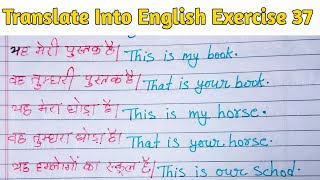 Translate Into English Exercise 37
यह मेरी पुस्तक है। This is my book.
वह तुम्हारी पुस्तक है। That is your book.
यह मेरा घोड़ा है। This is my horse.
वह तुम्हारा घोड़ा है। That is your horse.
यह हमलोगों का स्कूल है। This is our school.